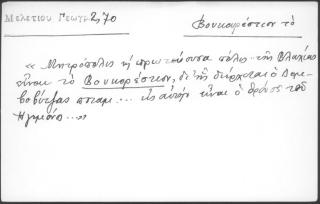 Μελετίου Γεωγρ 2,70
Βουκαρέστιον τὸ
« Μητρόπολις ἢ πρωτεύουσα πόλις τῆς Βλαχίας
εἶναι τὸ Βουκαρέστιον, δι' ἧς διέρχεται ὁ Δεμ-
βοβύτζας ποταμ... εἰς αὐτὴν εἶναι ὁ θρόνος τοῦ
Ἡγεμόνος...»